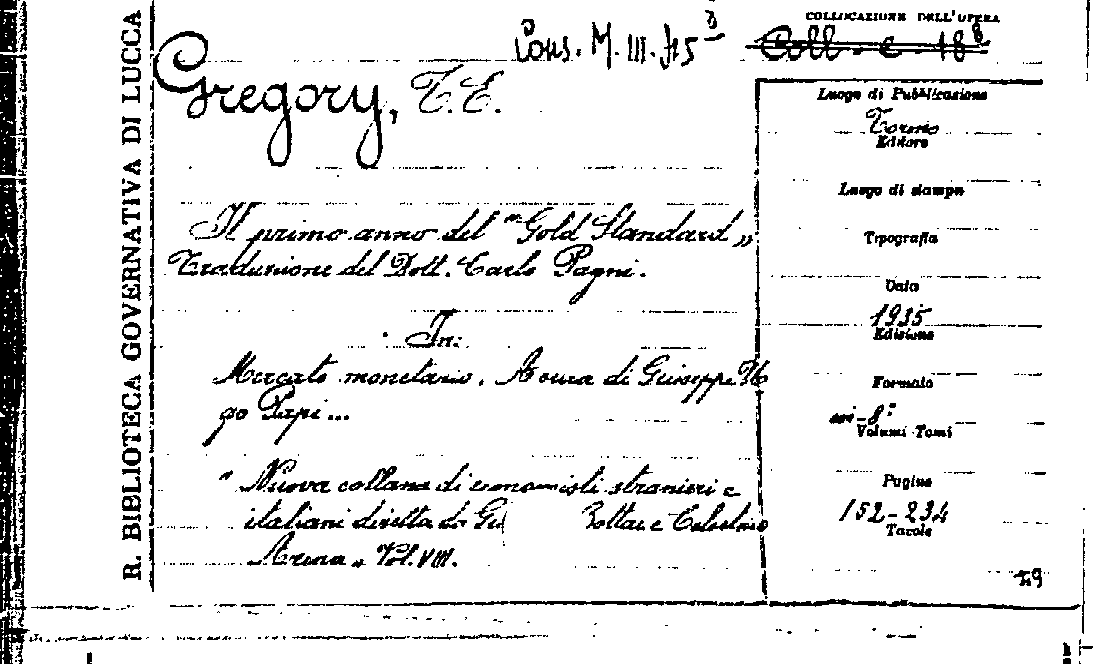 R. BIBLIOTECA GOVERNATIVA DI LUCCA
COLLOCAZIONE DELL'OPERA
Cons. M. III.
Coll - C - 18
Gregory, T. E.
Il primo anno del "Gold Standard„
Traduzione del Dott. Carlo Pagni.
In:
Mercato monetario. A cura di Giuseppe U
go Papi...
" Nuova collana di economisti stranieri e
italiani diretta da Gi Bottai e Celestino
Arena „ Vol. VIII.
Luogo di Pubblicazione
Torino
Editore
Luogo di stampa
Tipografia
Data
1935
Edizione
Formato
in-8°
Volumi Tomi
Pagine
152-234
Tavole